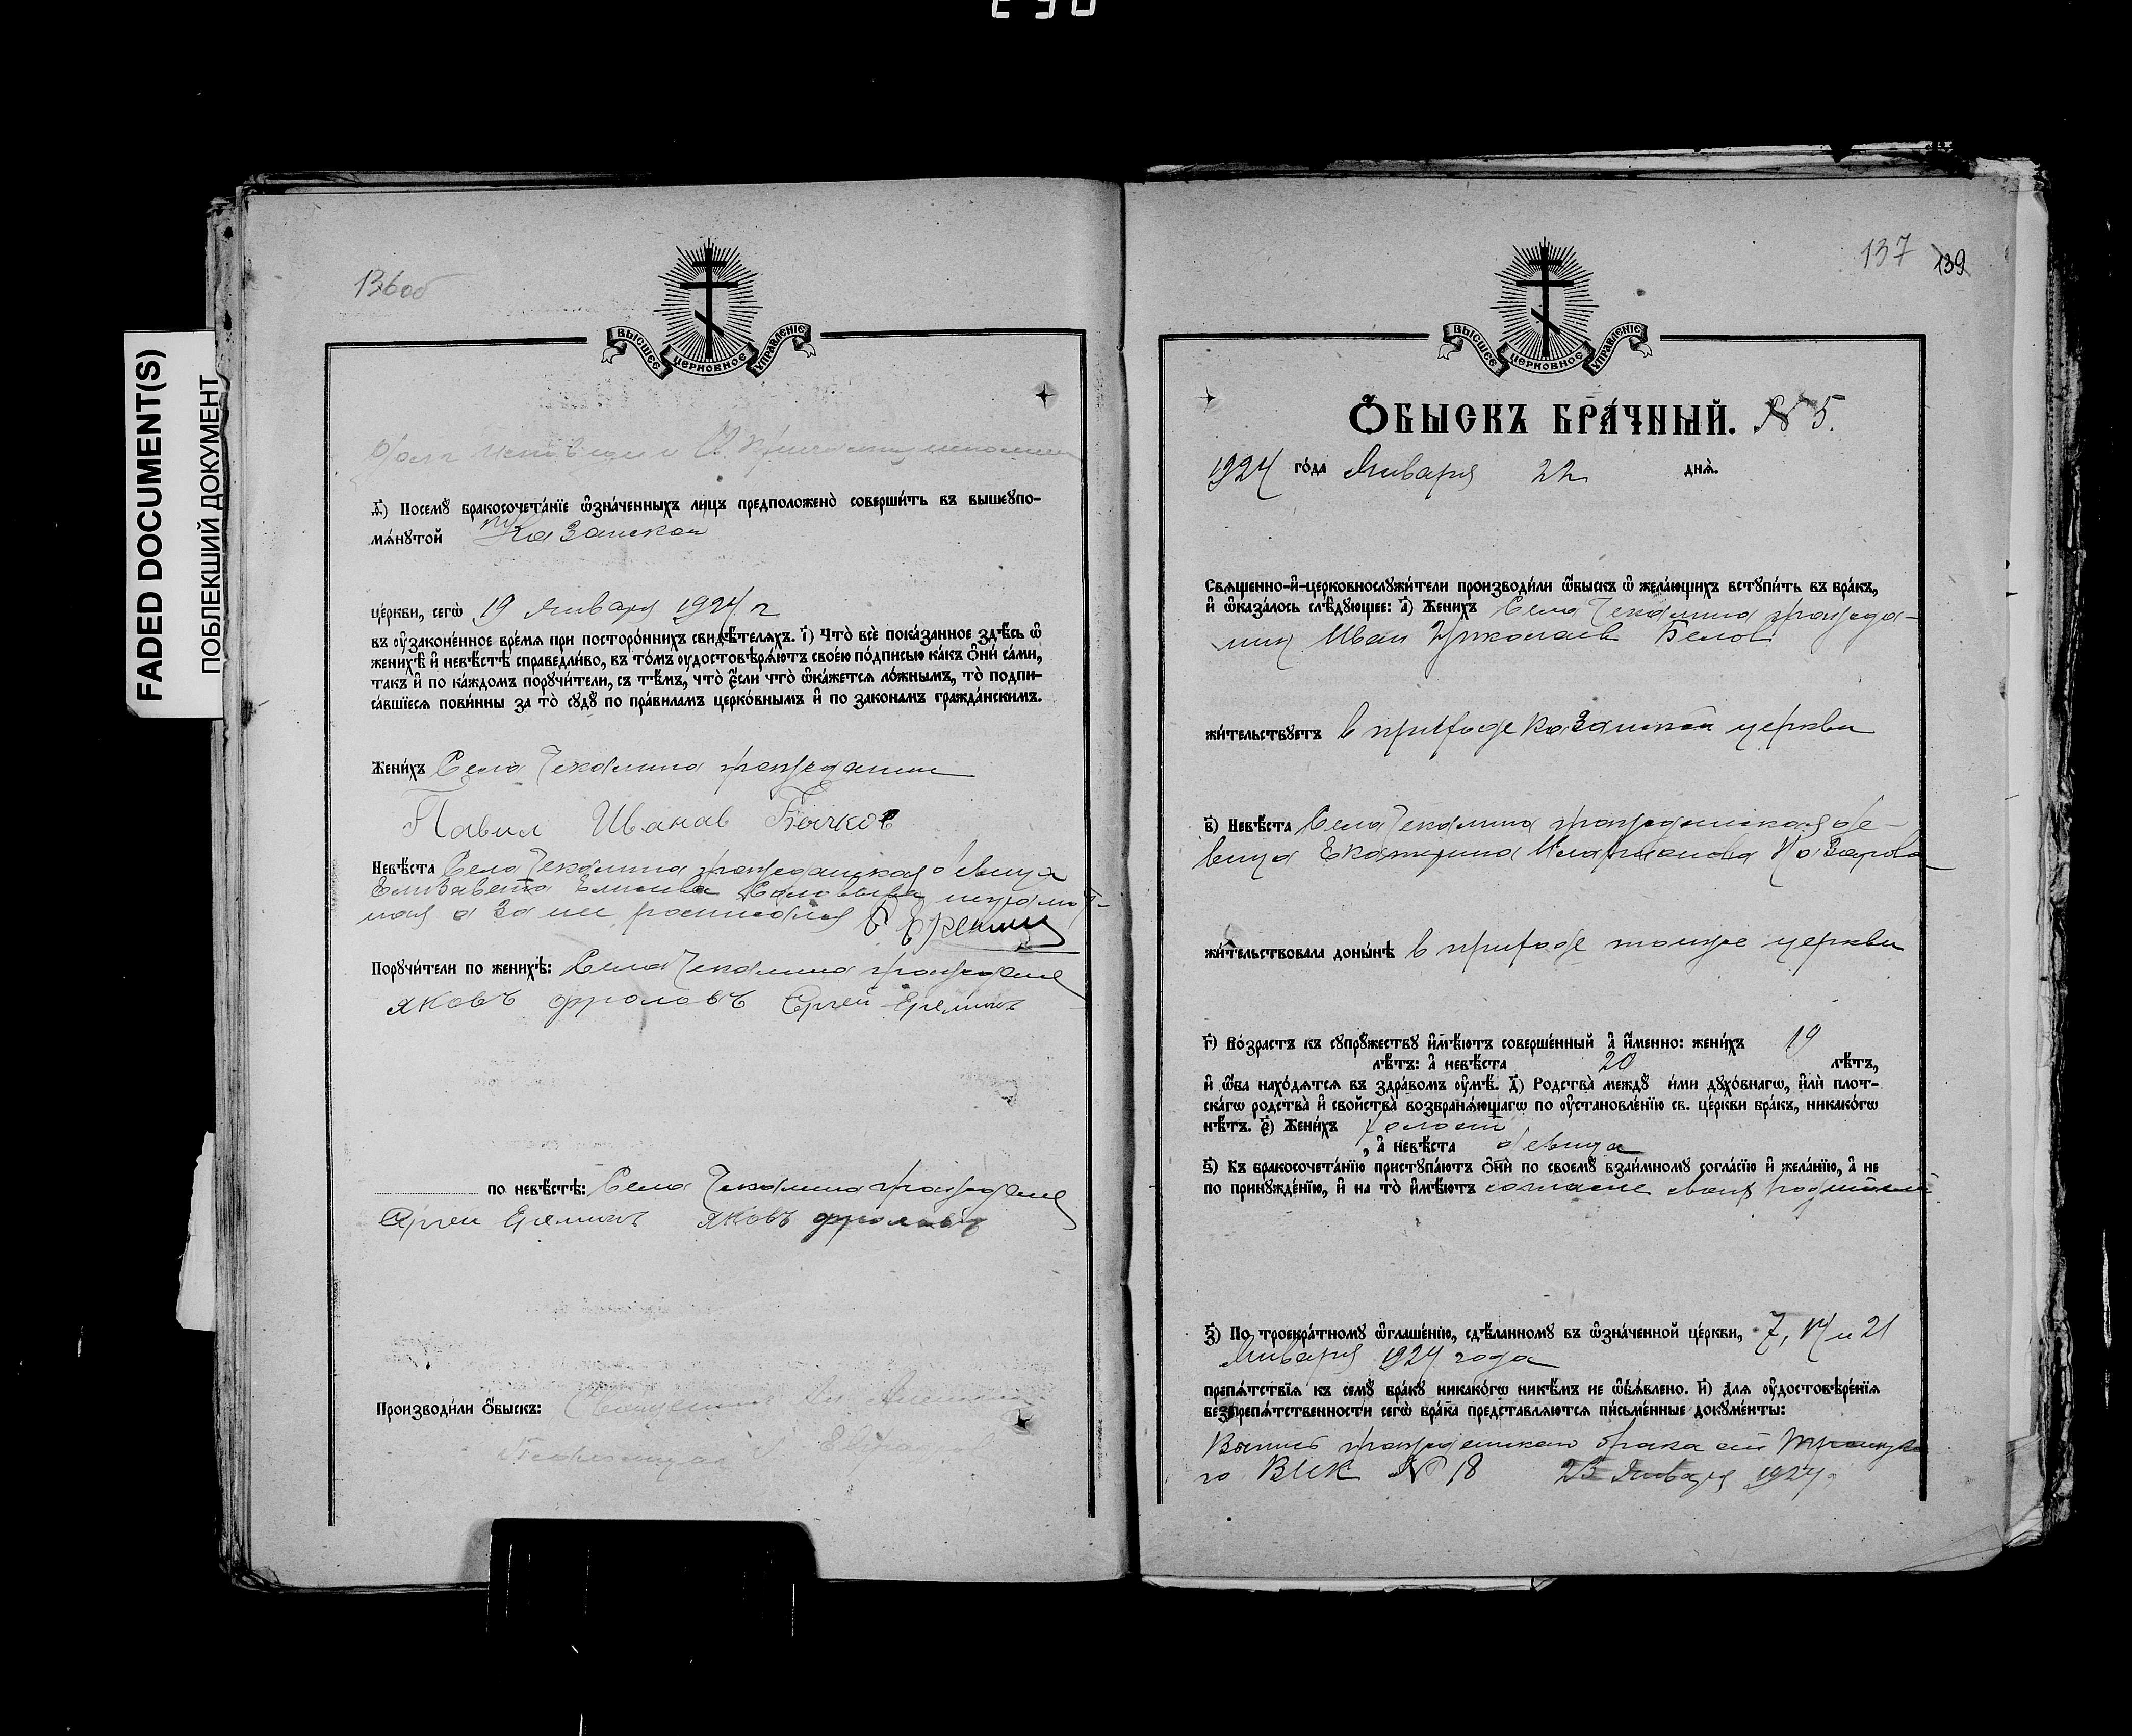 FADED DOCUMENT(S)
ПОБЛЕКШИЙ ДОКУМЕНТ
136об
ВЫСШЕЕ ЦЕРКОВНОЕ УПРАВЛЕНІЕ
ѳ҃) Посемꙋ̀ бракосочета́нїе ѡ҆зна́ченныхъ лицъ предположено̀ соверши́ть въ вышеꙋпо-
мѧ́нꙋтой Казанской
це́ркви, сегѡ̀ 19 Января 1924 г
въ ᲂу҆зако́ненное вре́мя при посторо́ннихъ свидѣ́телѧхъ. і҃) Что̀ всѐ пока́занное здѣ́сь ѡ҆
женихѣ̀ и҆ невѣ́стѣ справедли́во, въ то́мъ ᲂу҆достовѣрѧ́ютъ свое́ю по́дписью ка́къ ѻ҆нѝ са́ми,
та́къ и҆ по ка́ждомъ порꙋчи́тели, съ тѣ́мъ, что̀ є҆́сли что̀ ѡ҆ка́жется ло́жнымъ, то̀ подпи-
са́вшїеся пови́нны за то̀ сꙋдꙋ̀ по пра́виламъ церко́внымъ и҆ по зако́намъ гражда́нскимъ.
Жени́хъ Села Чекалина гражданин
Павил Иванав Бычков
Невѣ́ста Села Чекалина гражданская девица
Елизавета
а за нее
Порꙋчи́тели по женихѣ̀: Села Чекалина граждане
Яковъ Фроловъ Сергей Еремин
по невѣ́стѣ: Села Чекалина граждане
Сергей Еремин Яковъ Фроловъ
Производи́ли ѻ҆́быскъ:
137 139
ВЫСШЕЕ ЦЕРКОВНОЕ УПРАВЛЕНІЕ
Ѻ҆́быскъ бра́чный. № 5.
1924 го́да Января 22 днѧ̀.
Свѧщенно-и҆-церковнослꙋжи́тели производи́ли ѻ҆́быскъ ѡ҆ жела́ющихъ встꙋпи́ть въ бра́къ,
и҆ ѡ҆каза́лось слѣ́дꙋющее: а҃) Жени́хъ Села Чекалина гражда-
нин Иван Николаев Белов
жи́тельствꙋетъ в приходе Казанской церкви
в҃) Невѣ́ста Села Чекалина гражданская де-
вица Екатерина Назарова
жи́тельствовала доны́нѣ в приходе тойже церкви
г҃) Во́зрастъ къ сꙋпрꙋ́жествꙋ и҆мѣ́ютъ соверше́нный а҆ и҆́менно: жени́хъ 19
лѣ́тъ: а҆ невѣ́ста 20 лѣ́тъ,
и҆ ѻ҆́ба нахо́дѧтся въ здра́вомъ ᲂу҆мѣ̀. д҃) Родства̀ междꙋ̀ и́ми дꙋхо́внагѡ, и҆лѝ плот-
ска́гѡ родства̀ и҆ сво́йства̀ возбранѧ́ющагѡ по ᲂу҆становле́нїю св. це́ркви бра́къ, никако́гѡ
нѣ́тъ. є҃) Жени́хъ холост
, а҆ невѣ́ста девица
ѕ҃) Къ бракосочета́нїю пристꙋпа́ютъ ѻ҆нѝ по своемꙋ̀ взаи́мномꙋ согла́сїю и҆ жела́нїю, а҆ не
по принꙋжде́нїю, и҆ на то̀ и҆мѣ́ютъ согласие своих родителей
з҃) По троекра́тномꙋ ѡ҆глаше́нїю, сдѣ́ланномꙋ въ ѡ҆зна́ченной це́ркви, 7, 14 и 21
Января 1924 года
препѧ́тствїѧ къ семꙋ̀ бра́кꙋ никако́гѡ никѣ́мъ не ѡ҆б̾ѧ́влено. и҃) Для ᲂу҆достовѣре́нїѧ
безпрепѧ́тственности сегѡ̀ бра́ка представлѧ́ются пи́сьменные докꙋме́нты:
гражданскаго брака от
го ВИК № 18 23 Января 1924